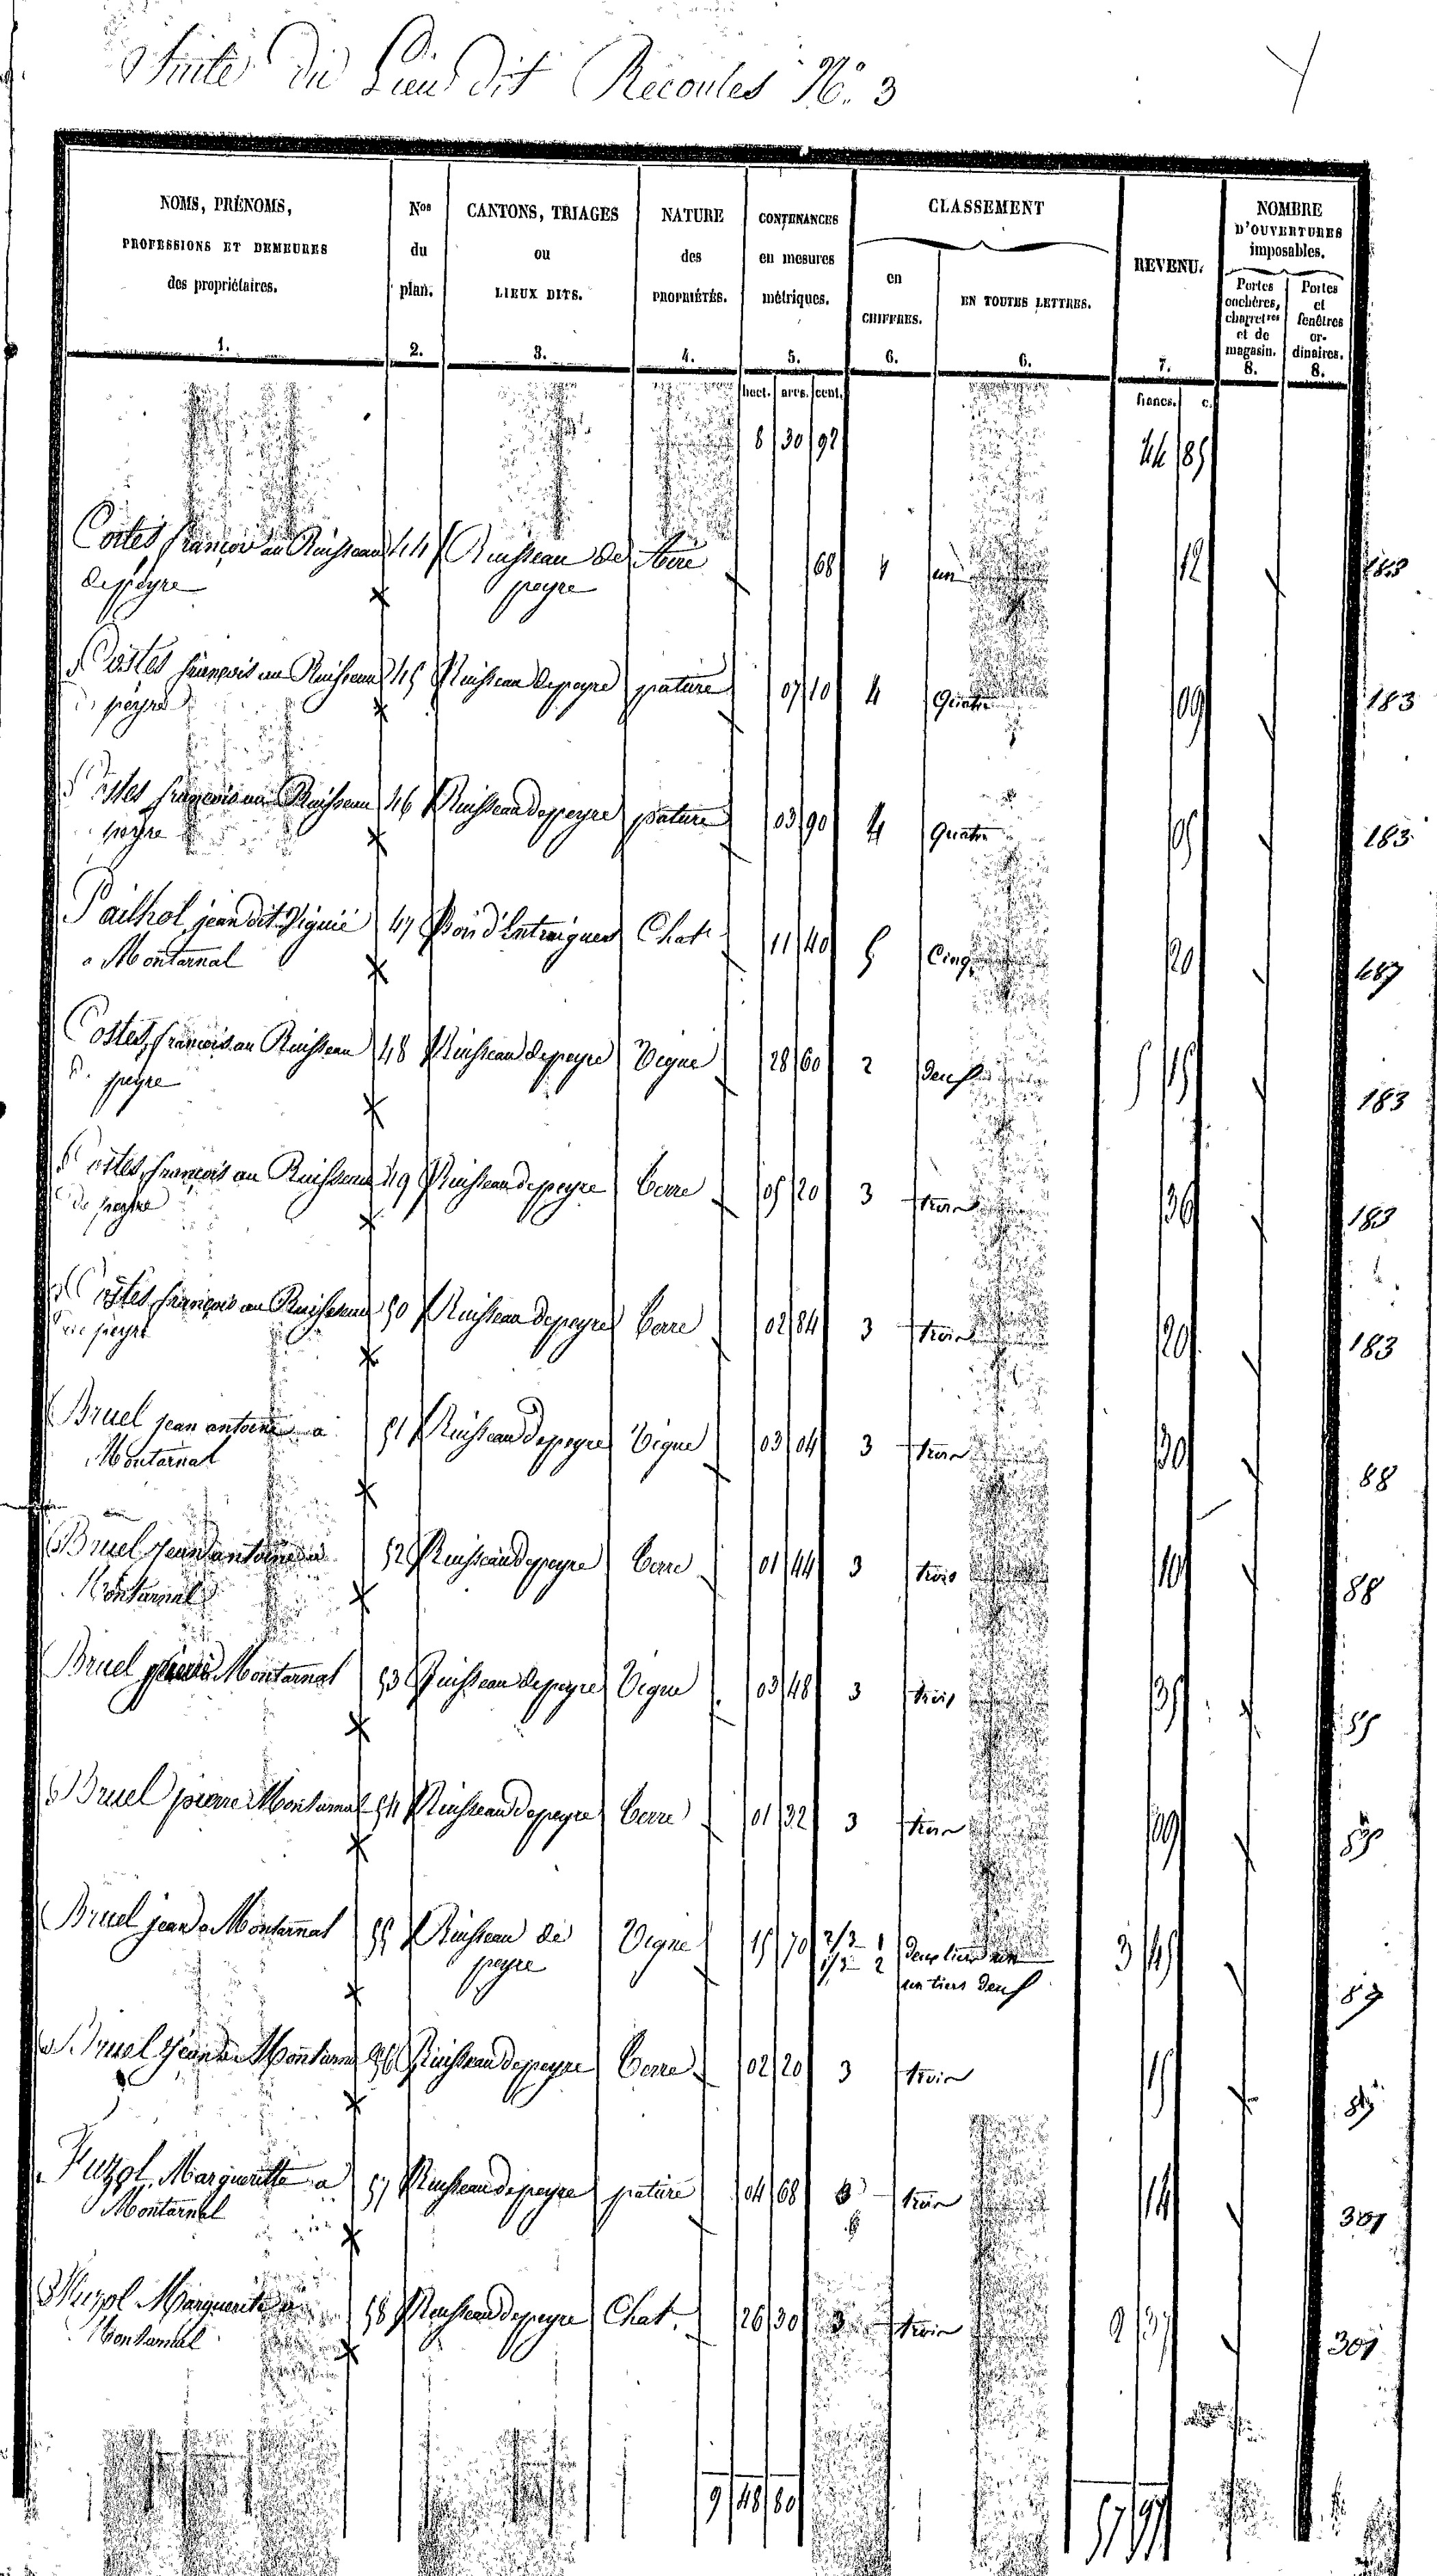 Suite du Lieu dit Recoules N.° 3
NOMS, PRÉNOMS, PROFESSIONS ET DEMEURES des propriétaires. 1.
Nos du plan. 2.
CANTONS, TRIAGES ou LIEUX DITS. 3.
NATURE des PROPRIÉTÉS. 4.
CONTENANCES en mesures métriques. 5.
CLASSEMENT
en CHIFFRES. 6.
EN TOUTES LETTRES. 6.
REVENU. 7.
NOMBRE D'OUVERTURES imposables.
Portes cochères, charretres et de magasin. 8.
Portes et fenêtres or-dinaires. 8.
hect. ares. cent. francs. c.
8 30 92 44 85
Costes françois au Ruisseau 44 Ruisseau de 68 1 un 12 183
de peyre peyre
Costes françois au Ruisseau 45 Ruisseau de peyre pature 07 10 4 Quatre 09 183
de peyre
Costes françois au Ruisseau 46 Ruisseau de peyre pature 03 90 4 Quatre 05 183
peyre
Pailhol jean dit Viguié 47 Chat. 11 40 5 Cinq 20 487
a Montarnal
Costes, françois au Ruisseau 48 Ruisseau de peyre Vigne 28 60 2 deux 5 15 183
de peyre
Costes, françois au Ruisseau 49 Ruisseau de peyre terre 05 20 3 trois 36 183
de peyre
Costes, françois au Ruisseau 50 Ruisseau de peyre terre 02 84 3 trois 20 183
de peyre
Bruel jean antoine a 51 Ruisseau de peyre Vigne 03 04 3 trois 30 88
Montarnal
Bruel jean antoine a 52 Ruisseau de peyre terre 01 44 3 trois 10 88
Montarnal
Bruel pierre Montarnal 53 Ruisseau de peyre Vigne 03 48 3 trois 35
Bruel pierre Montarnal 54 Ruisseau de peyre terre 01 32 3 trois 09
Bruel jean a Montarnal 55 Ruisseau de Vigne 15 70 2/3 1 deux tiers un 3 45 87
peyre 1/3 2 un tiers deux
Bruel jean a Montarnal 56 Ruisseau de peyre terre 02 20 3 trois 15 87
Fuzol, Margueritte a 57 Ruisseau de peyre pature 04 68 3 trois 14 301
Montarnal
Fuzol Margueritte a 58 Ruisseau de peyre Chat. 26 30 3 trois 2 37 301
Montarnal
9 48 80 57 97